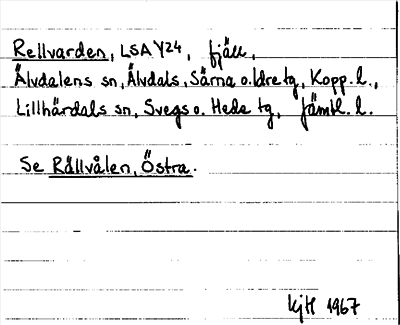 Rellvarden, LSA Y24, fjäll,
Älvdalens sn, Älvdals, Särna o. Idre tg, Kopp. l.,
Lillhärdals sn, Svegs o. Hede tg, Jämtl. l.
Se Rällvålen, Östra.
KjH 1967